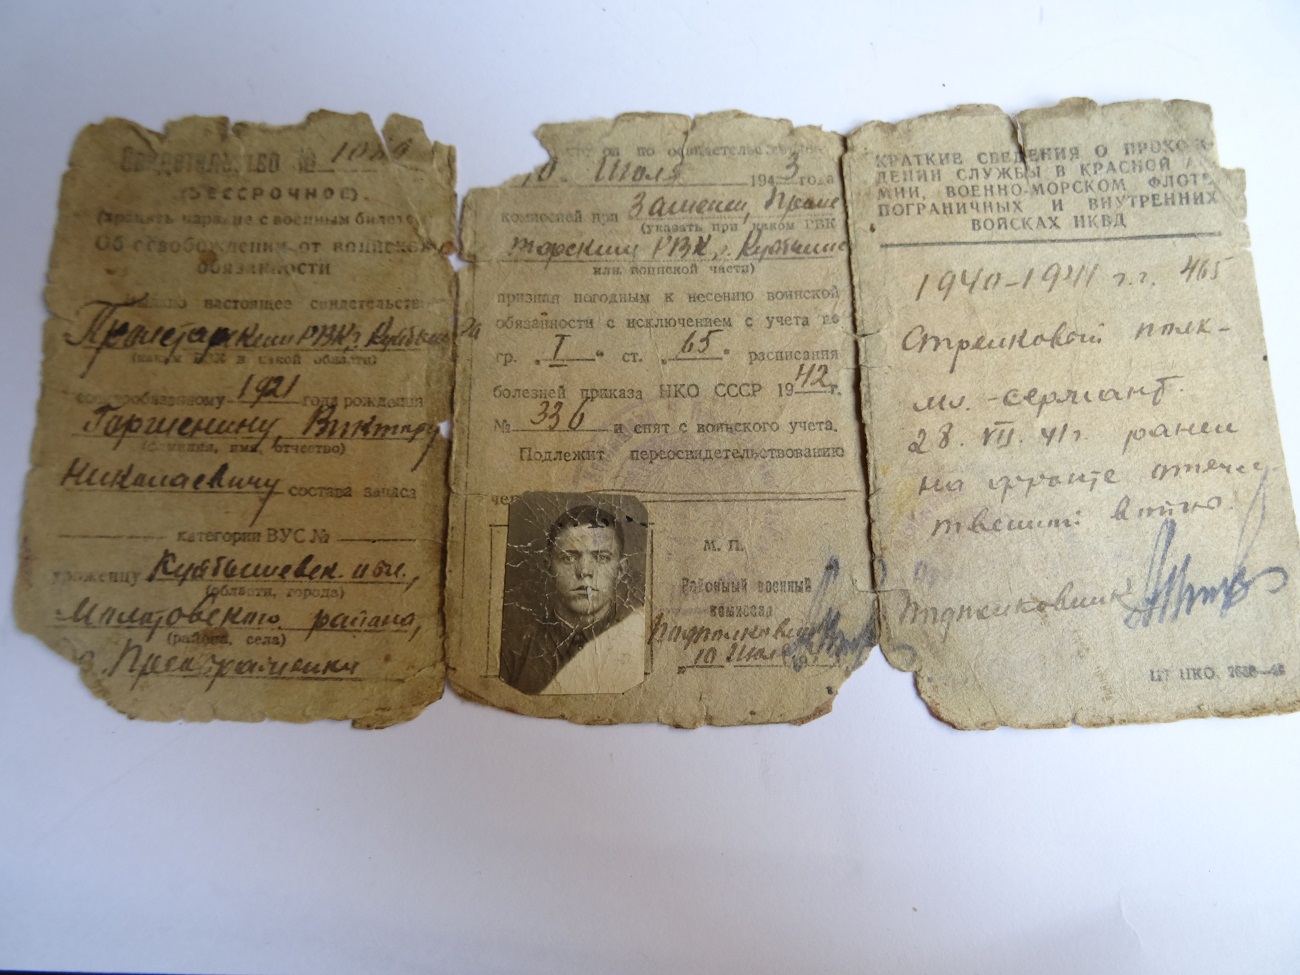 Свидетельство №
(БЕССРОЧНОЕ)
(хранить наравне с военным билетом)
Об освобождении от воинской
обязанности
Выдано настоящее свидетельство
Пролетарским РВК г. Куйбышева
(каким РВК и какой области)
военнообязанному 1921 года рождения
Виктору
(фамилия, имя, отчество)
Николаевичу состава запаса
категории ВУС №
уроженцу Куйбышевск. обл.,
(области, города)
Молотовского района,
(района, села)
с. Преображенки
по освидетельствовании
10 Июля 1943 года
комиссией при Проле
(указать при каком РВК
тарским РВК, г. Куйбышева
или воинской части)
признан негодным к несению воинской
обязанности с исключением с учета по
гр. „I“ ст. „65“ расписания
болезней приказа НКО СССР 1942 г.
№ 336 и снят с воинского учета.
Подлежит переосвидетельствованию
М. П.
Районный военный
комиссар
Подполковник
„10 Июля
КРАТКИЕ СВЕДЕНИЯ О ПРОХОЖ-
ДЕНИИ СЛУЖБЫ В КРАСНОЙ АР-
МИИ, ВОЕННО-МОРСКОМ ФЛОТЕ,
ПОГРАНИЧНЫХ И ВНУТРЕННИХ
ВОЙСКАХ НКВД
1940-1941 г.г. 465
Стрелковый полк-
мл.-сержант.
28.VII.41г. ранен
на фронте отече-
твенной войны.
Подполковник